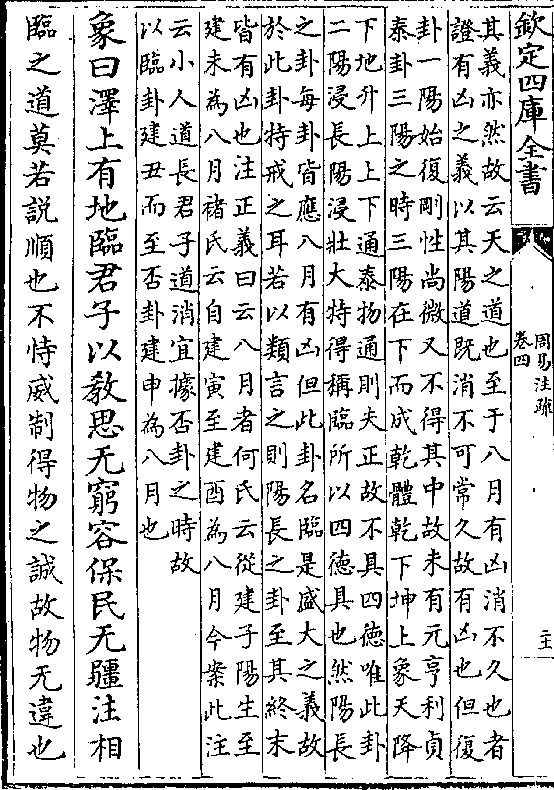 欽定四庫全書
周易注疏
卷四
主
其義亦然故云天之道也至于八月有凶消不久也者
證有凶之義以其陽道既消不可常久故有凶也但復
卦一陽始復剛性尚微又不得其中故未有元亨利貞
泰卦三陽之時三陽在下而成乾體乾下坤上象天降
下地升上上下通泰物通則失正故不具四德唯此卦
二陽浸長陽浸壯大特得稱臨所以四德具也然陽長
之卦每卦皆應八月有凶但此卦名臨是盛大之義故
於此卦特戒之耳若以類言之則陽長之卦至其終末
皆有凶也注正義曰云八月者何氏云從建子陽生至
建未為八月褚氏云自建寅至建酉為八月今案此注
云小人道長君子道消宜據否卦之時故
以臨卦建丑而至否卦建申為八月也
象曰澤上有地臨君子以教思无窮容保民无疆注相
臨之道莫若說順也不恃威制得物之誠故物无違也